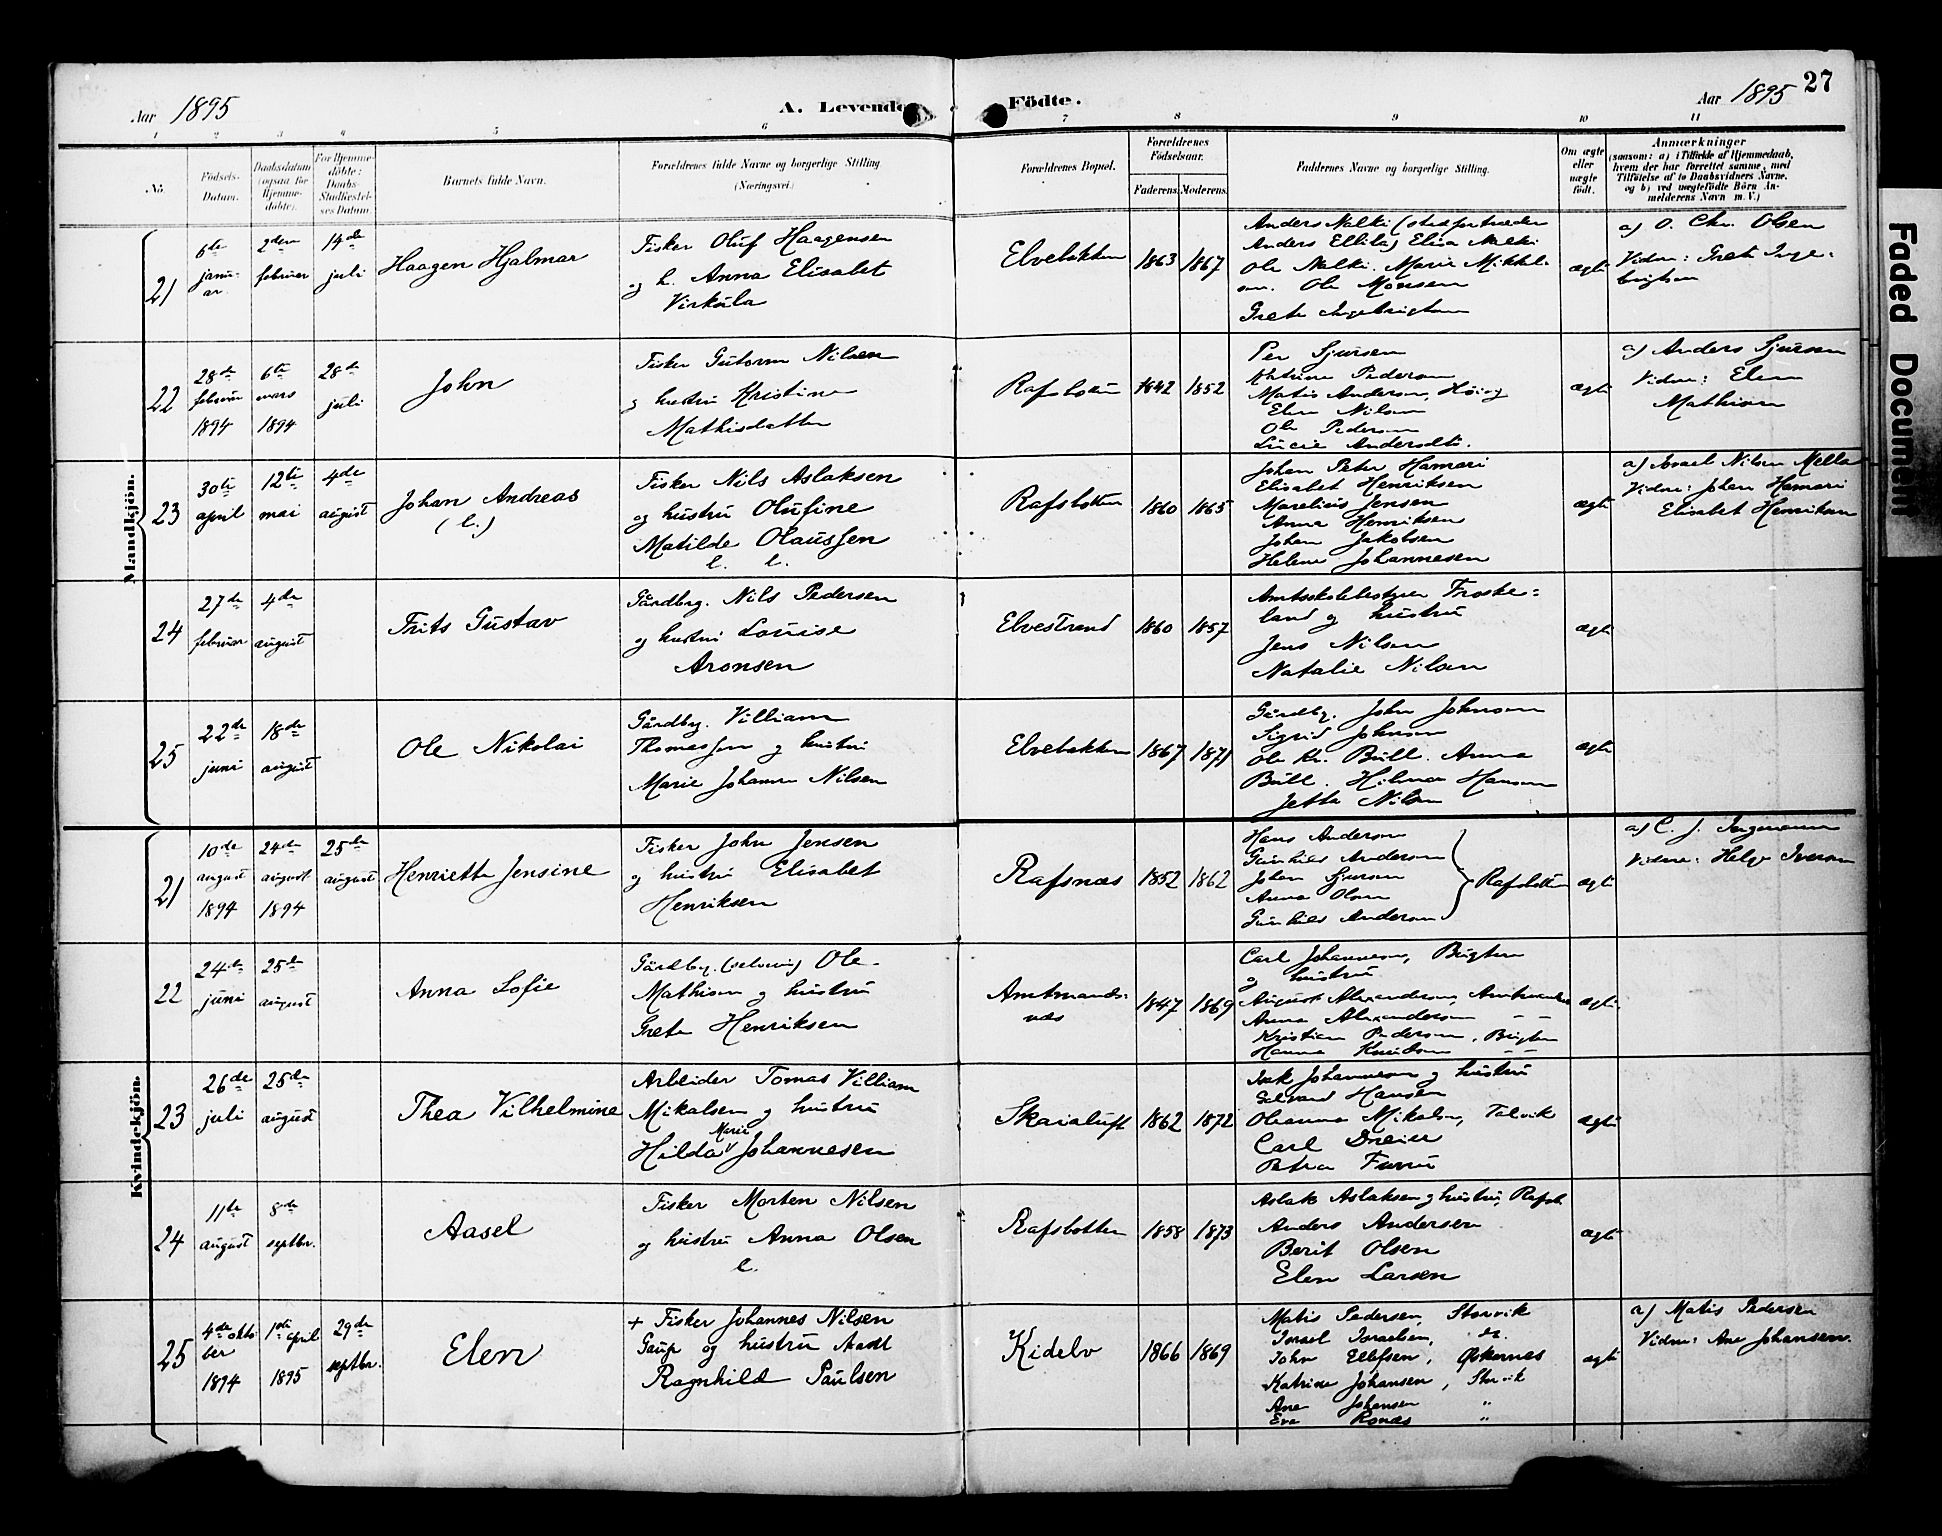 27
Aar 1895
A. Levende Födte.
Aar 1895
1 2 3 4 5 6 7 8 9 10 11
No.
Födsels-
Datum.
Daabsdatum
(ogsaa for
Hjemme-
döbte).
For Hjemme-
döbte:
Daabs-
Stadfæstel-
ses Datum.
Barnets fulde Navn.
Forældrenes fulde Navne og borgerlige Stilling
(Næringsvei.)
Forældrenes Bopæl.
Forældrenes
Födselsaar.
Faderens. Moderens.
Faddernes Navne og borgerlige Stilling.
Om ægte
eller
uægte
født.
Anmærkninger
(saasom: a) i Tilfælde af Hjemmedaab,
hvem der har forrettet samme, med
Tilföielse af to Daabsvidners Navne.
og b) ved uægtefödte Börn An-
melderens Navn m. V.)
Mandkjön.
21
6te
janu-
ar.
2den
februar
14de
juli
Haagen Hjalmar
Fisker Oluf Haagensen
og h. Anna Elisabet
Virkula
Elvebakken
1863
1867
Anders Nalki (stedfortræder
Anders Ellila) Elisa Nalki
Ole Nalki. Marie Mikkel-
sen. Ole Monsen
Grete Ingebrigtsen
ægte
a) O. Chr. Olsen
Vidne: Grete Inge-
brigtsen
22
28de
februar
1894
6te
mars
1894
28de
juli
John
Fisker Gutorm Nilsen
og hustru Kristine
Mathisdatter
Rafsbotten
1842
1852
Per Sjursen
Katrine Pedersen
Matis Andersen,
Elen Nilsen
Ole Pedersen
Lucie Andersdtr.
ægte
a) Anders Sjursen
Vidne: Elen
Mathisen
23
30te
april
12te
mai
4de
august
Johan Andreas
(l.)
Fisker Nils Aslaksen
og hustru Olufine
Matilde Olaussen
l. l.
Rafsbotten
1860
1865
Johan Peter Hamari
Elisabet Henriksen
Marelius Jensen
Anna Henriksen
Johan Jakobsen
Helene Johannesen
ægte
a) Israel Nilsen Mella
Vidne: Johan Hamari
Elisabet Henriksen
24
27de
februar
4de
august
Frits Gustav
Gårdbrg. Nils Pedersen
og hustru Louise
Aronsen
Elvestrand
1860
1857
Amtsskolebestyrer Froske-
land og hustru
Jens Nilsen
Natalie Nilsen
ægte
25
22de
juni
18de
august
Ole Nikolai
Gårdbrg. Villiam
Thomassen og hustru
Marie Johanne Nilsen
Elvebakken
1867
1871
Gårdbg. John Johnsen
Sigrid Johnsen
Ole Kr. Bull. Anna
Bull. Hilma Hansen
Jette Nilsen
ægte
Kvindekjön.
21
10de
august
1894
24de
august
1894
25de
august
Henriette Jensine
Fisker John Jensen
og hustru Elisabet
Henriksen
Rafsnæs
1852
1862
Hans Andersen
Gunhild Andersen
Johan Sjursen
Anna Olsen
Gunhild Andersen
Rafsbotten
ægte
a) C. J. Ingemann
Vidne: Helge Iversen
22
24de
juni
25de
august
Anna Sofie
Gårdbg. (selveier) Ole
Mathisen og hustru
Grete Henriksen
Amtmands-
næs
1847
1869
Carl Johannesen, Bugten
og hustru
August Alexandersen, Amtmandsn.
Anna Alexandersen - -
Kristian Pedersen, Bugten
Hanna Knudsen - -
ægte
23
26de
juli
25de
august
Thea Vilhelmine
Arbeider Tomas Villiam
Mikalsen og hustru
Marie
Hilda V Johannesen
Skaialuft
1862
1872
Isak Johannesen og hustru
Edvard Hansen
Oleanna Mikalsen, Talvik
Carl Dreier
Petra
ægte
24
11te
august
8de
septbr.
Aasel
Fisker Morten Nilsen
og hustru Anna Olsen
l.
Rafsbotten
1858
1873
Aslak Aslaksen og hustru, Rafsb.
Anders Andersen
Berit Olsen
Elen Larsen
ægte
25
4de okto
ber
1894
1ste april
1895
29de
septbr.
Elen
+ Fisker Johannes Nilsen
Gaup og hustru
Ragnhild Paulsen
Kidebo
1866
1869
Matis Pedersen, Storvik
Israel Israelsen, do.
John Ellefsen, Øskernes
Katrine Johansen, Storvik
Ane Johansen "
Eva Ronæs "
ægte
a) Matis Pedersen
Vidne: Ane Johansen.
Faded Document